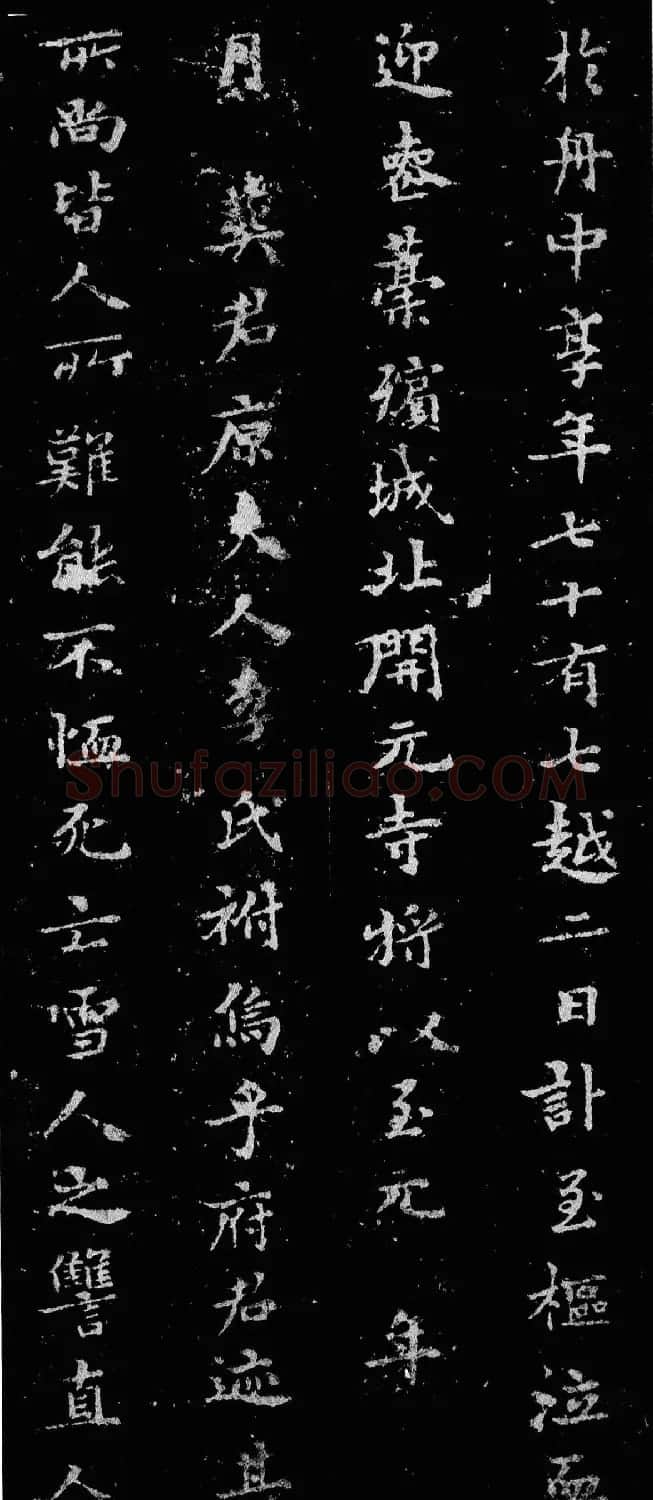 於舟中享年七十有七越二日訃至樞泣而
迎喪藁殯城北開元寺將以至元 年
月 葬君原夫人李氏祔烏乎府君迹其
所尚皆人所難能不恤死亡雪人之讐直人
Shufaziliao.COM